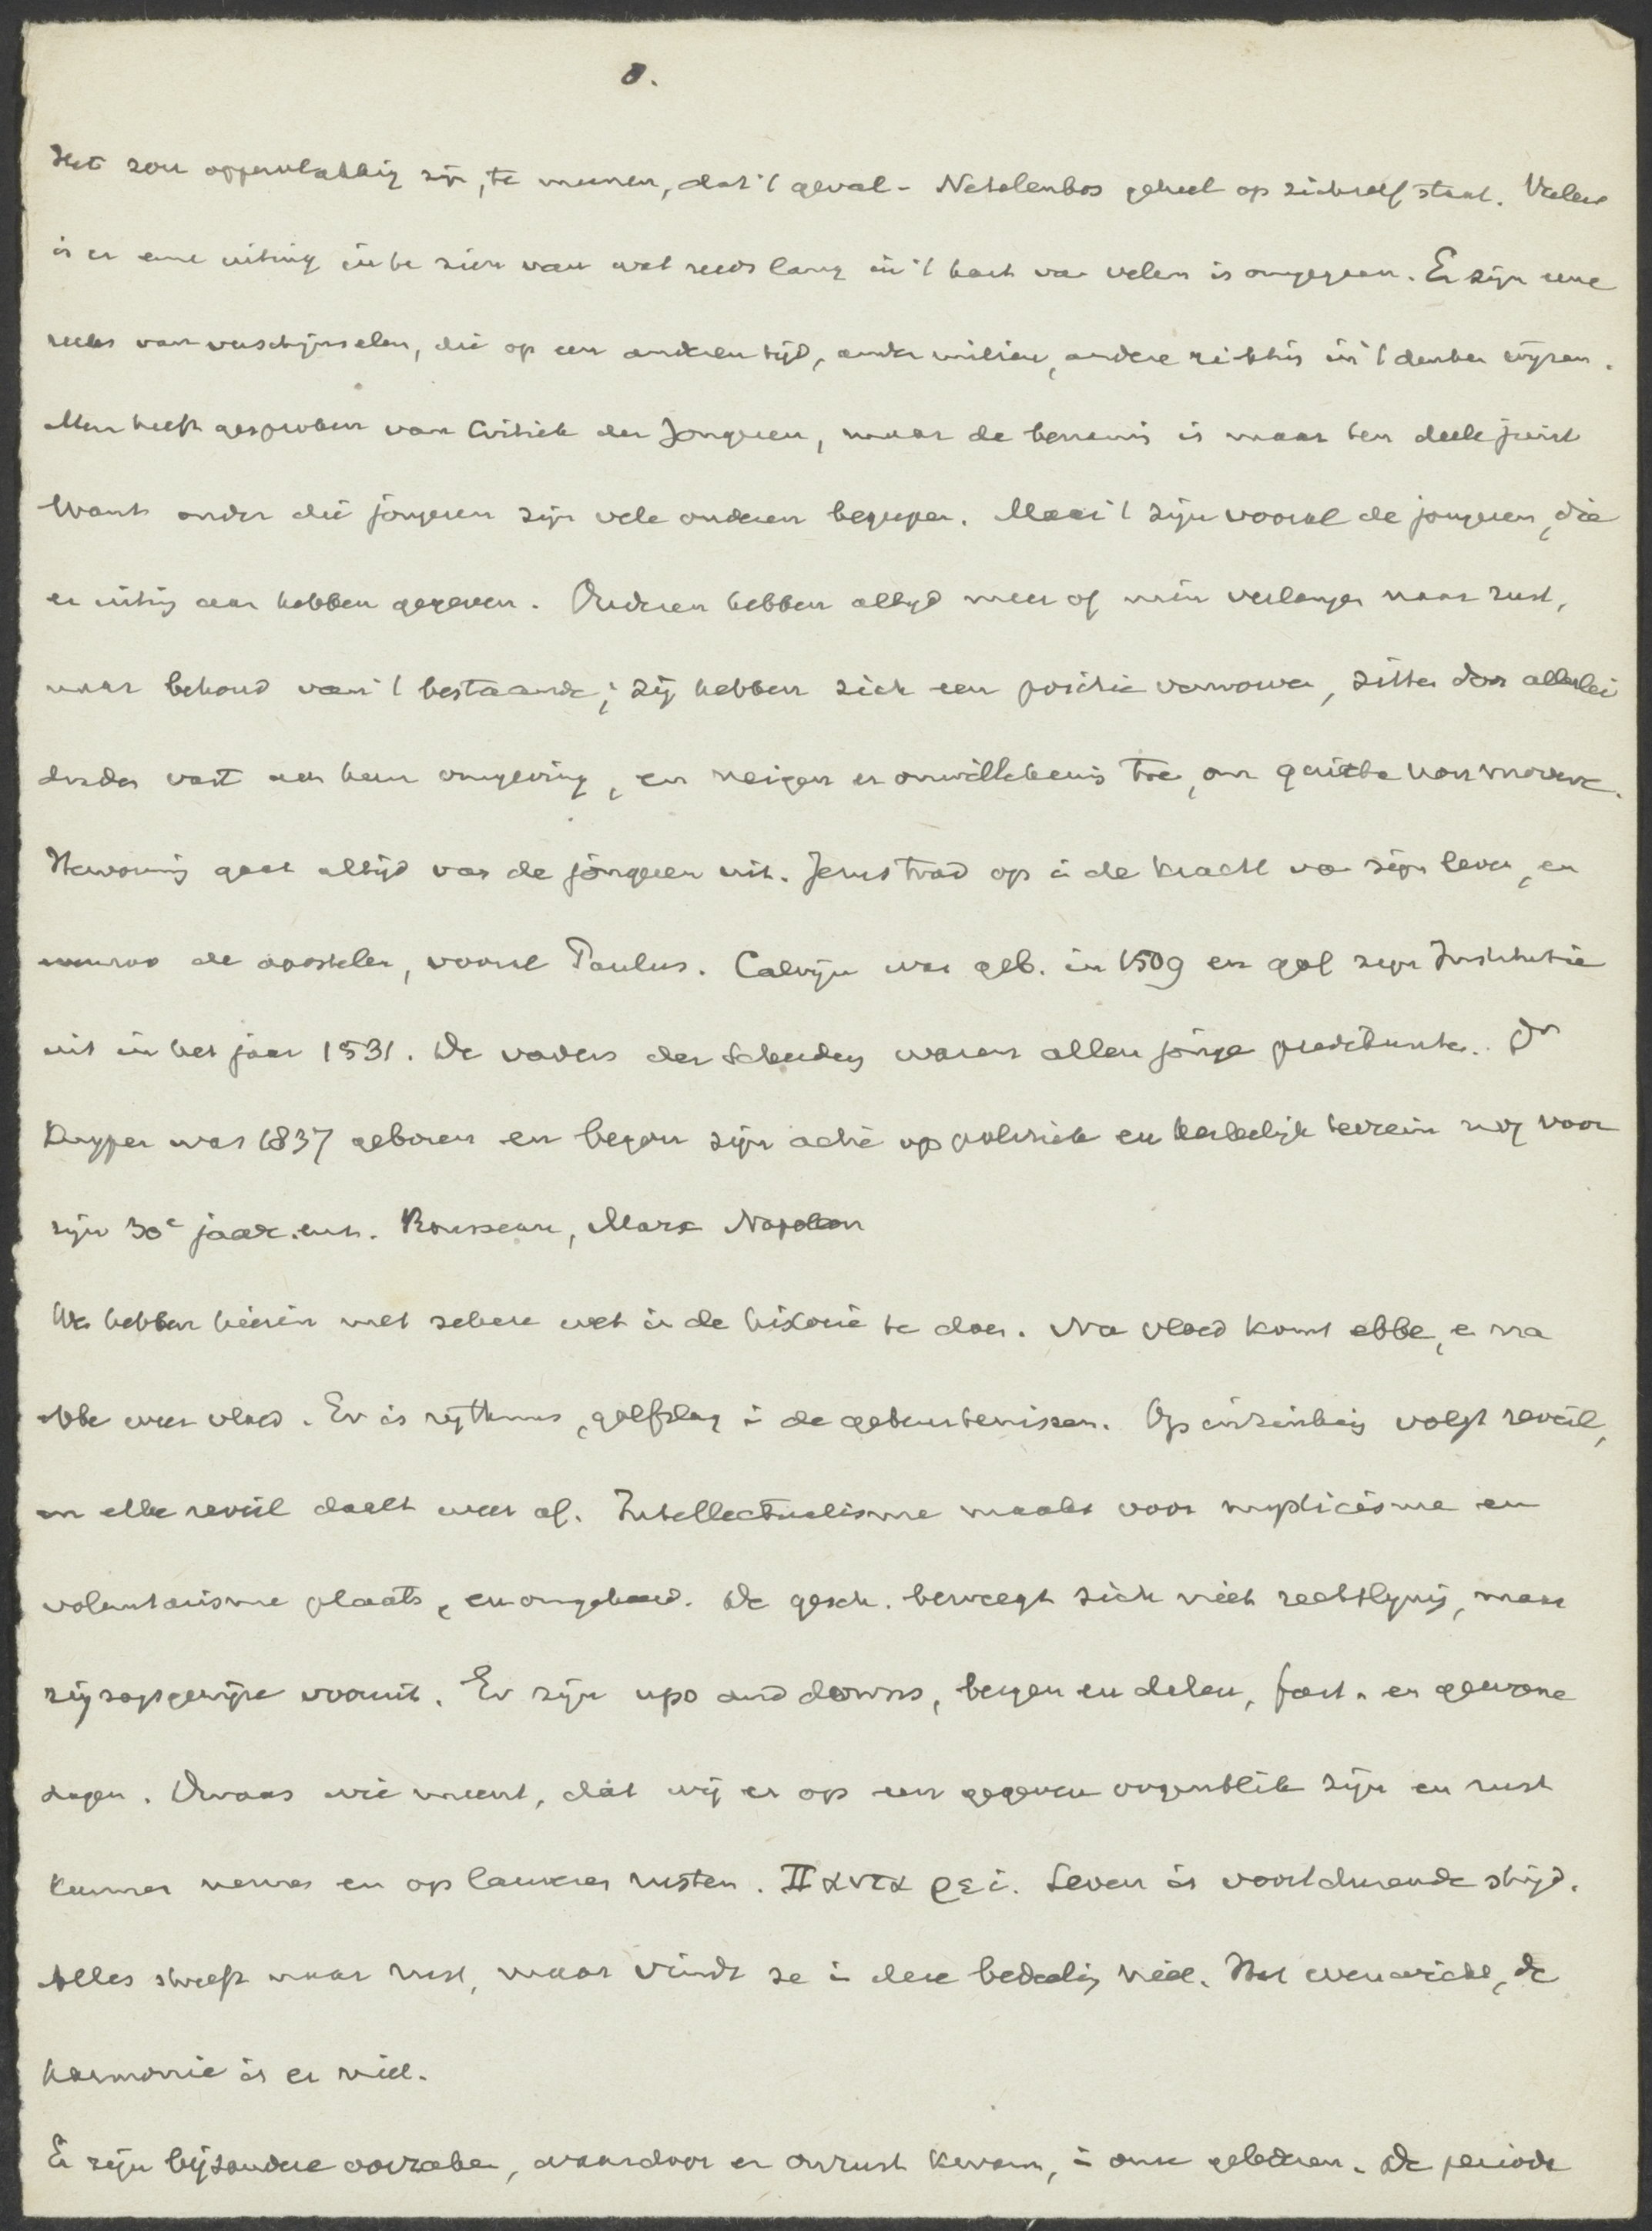 8.
Het zou oppervlakkig zijn, te meenen, dat 't geval-Netelenbos geheel op zichzelf staat. Veeleer
is er eene uiting in te zien van wat reeds lang in 't hart van velen is omgegaan. Er zijn eene
reeks van verschijnselen, die op een anderen tijd, ander milieu, andere richting in 't denken wijzen.
Men heeft gesproken van Critiek der Jongeren, maar de benaming is maar ten deele juist
Want onder die jongeren zijn vele ouderen begrepen. Maar 't zijn vooral de jongeren, die
er uiting aan hebben gegeven. Ouderen hebben altijd meer of min verlangen naar rust,
naar behoud van 't bestaande; zij hebben zich een positie verworven, zitten door allerlei
draden vast aan hun omgeving, en neigen er onwillekeurig toe, om quieta non movere.
Hervorming gaat altijd van de jongeren uit. Jezus trad op in de kracht van zijn leven, en
de apostelen, vooral Paulus. Calvijn was geb. in 1509 en gaf zijn Institutie
uit in het jaar 1531. De vaders der Scheiding waren allen jonge predikanten. Dr
Kuyper was 1837 geboren en begon zijn actie op politiek en kerkelijk terrein nog voor
zijn 30e jaar. enz. Rousseau, Marx Napoleon
We hebben hierin met zekere wet in de historie te doen. Na vloed komt ebbe, en na
ebbe weer vloed. Er is rythmus, golfslag in de gebeurtenissen. Op inzinking volgt reveil,
en elke reveil daalt weer af. Intellectualisme maakt voor mysticisme en
voluntarisme plaats, en omgekeerd. De gesch. beweegt zich niet rechtlijnig, maar
zigzagsgewijze vooruit. Er zijn ups and downs, bergen en dalen, feest- en gewone
dagen. Dwaas wie meent, dat wij er op een gegeven oogenblik zijn en rust
kunnen nemen en op lauweren rusten. Παντα ρει. Leven is voortdurende strijd.
Alles streeft naar rust, maar vindt ze in deze bedeeling niet. Het evenwicht, de
harmonie is er niet.
Er zijn bijzondere oorzaken, waardoor er onrust kwam, in onze gelederen. De periode